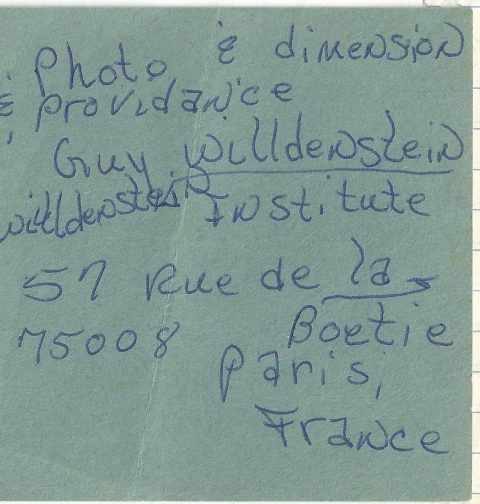 Photo & dimension
& providance
Guy Willdenstein
willdenstein Institute
57 Rue de la
75008 Boetie
Paris,
France